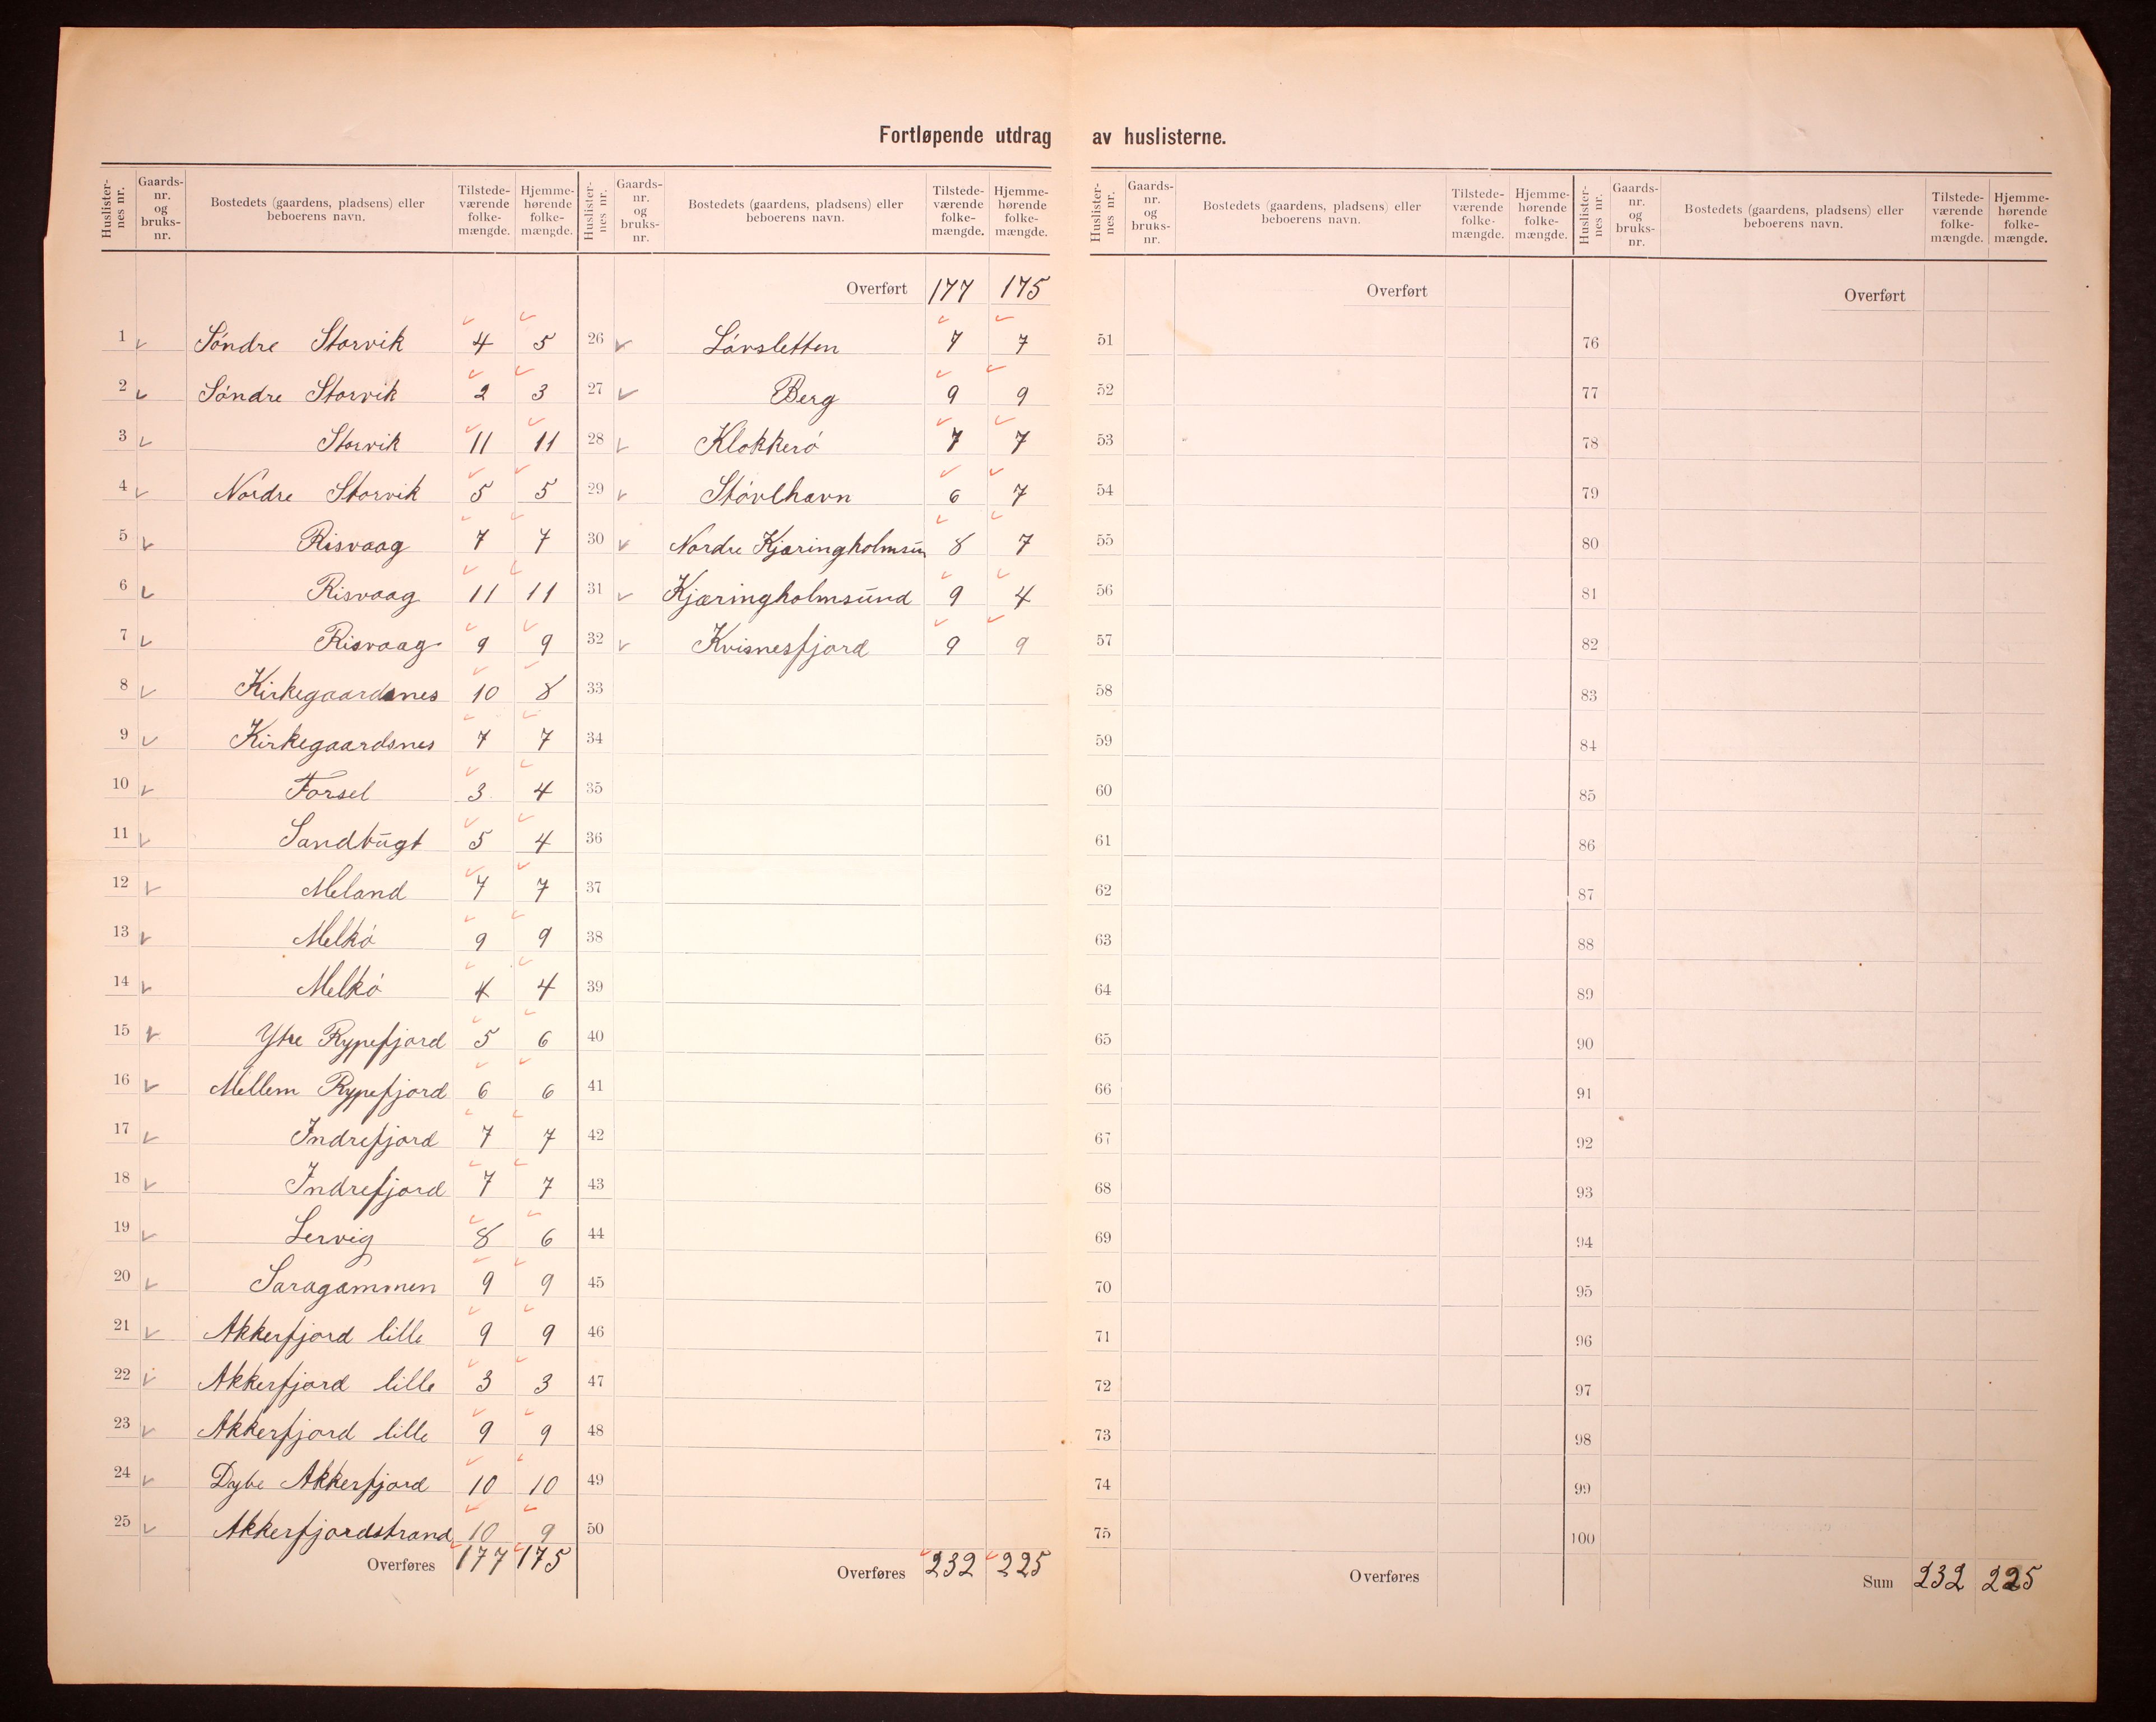 Fortløpende utdrag av huslisterne.
Huslister-nes nr. Gaards-nr. og bruks-nr. Bostedets (gaardens, pladsens) eller beboerens navn. Tilstede-værende folke-mængde. Hjemme-hørende folke-mængde.
1 Søndre Storvik 4 5
2 Søndre Storvik 2 3
3 Storvik 11 11
4 Nordre Storvik 5 5
5 Risvaag 7 7
6 Risvaag 11 11
7 Risvaag 9 9
8 Kirkegaardsnes 10 8
9 Kirkegaardsnes 7 7
10 Forsel 3 4
11 Sandbugt 5 4
12 Meland 7 7
13 Melkø 9 9
14 Melkø 4 4
15 Ytre Rypefjord 5 6
16 Mellem Rypefjord 6 6
17 Indrefjord 7 7
18 Indrefjord 7 7
19 Lervig 8 6
20 Saragammen 9 9
21 Akkerfjord lille 9 9
22 Akkerfjord lille 3 3
23 Akkerfjord lille 9 9
24 Dybe Akkerfjord 10 10
25 Akkerfjordstrand 10 9
Overføres 177 175
Huslister-nes nr. Gaards-nr. og bruks-nr. Bostedets (gaardens, pladsens) eller beboerens navn. Tilstede-værende folke-mængde. Hjemme-hørende folke-mængde.
Overført 177 175
26 Lørsletten 7 7
27 Berg 9 9
28 Klokkerø 7 7
29 Størlhavn 6 7
30 Nordre Kjæringholmsun 8 7
31 Kjæringholmsund 9 4
32 Kvisnesfjord 9 9
33
34
35
36
37
38
39
40
41
42
43
44
45
46
47
48
49
50
Overføres 232 225
Huslister-nes nr. Gaards-nr. og bruks-nr. Bostedets (gaardens, pladsens) eller beboerens navn. Tilstede-værende folke-mængde. Hjemme-hørende folke-mængde.
Overført
51
52
53
54
55
56
57
58
59
60
61
62
63
64
65
66
67
68
69
70
71
72
73
74
75
Overføres
Huslister-nes nr. Gaards-nr. og bruks-nr. Bostedets (gaardens, pladsens) eller beboerens navn. Tilstede-værende folke-mængde. Hjemme-hørende folke-mængde.
Overført
76
77
78
79
80
81
82
83
84
85
86
87
88
89
90
91
92
93
94
95
96
97
98
99
100
Sum 232 225